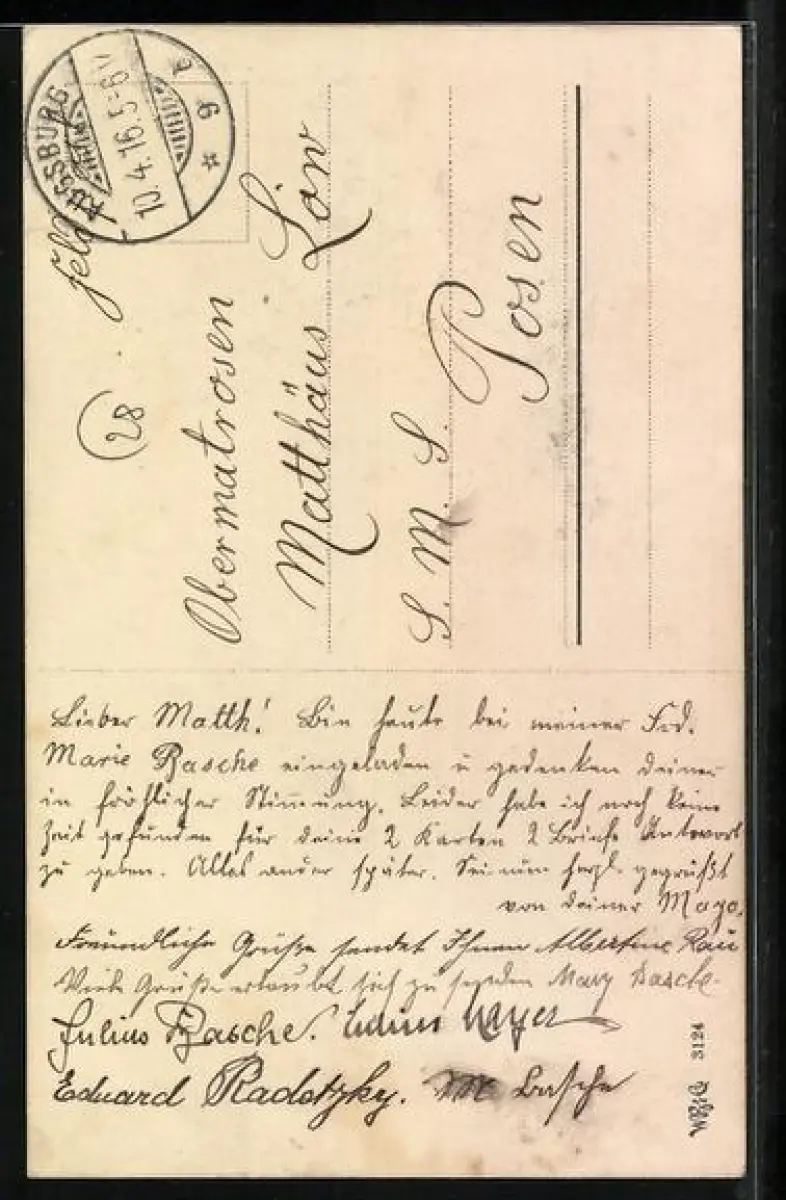 AUGSBURG
10.4.16.5-6N
Feldp
28
Obermatrosen
Matthäus Löw
S. M. S. Posen
Lieber Matth! Bin heute bei meiner Frd.
Marie Basche eingeladen u gedenken deiner
in fröhlicher Stimmung. Leider habe ich noch keine
Zeit gefunden für deine 2 Karten 2 Briefe Antwort
zu geben. Alles ander später. Sei nun herzl. gegrüßt
von deiner Mayo.
Freundliche Grüße sendet Ihnen Albertine Rau
Viele Grüße erlaubt sich zu senden Mary Basche.
Julius Basche. Mayer
Eduard Radotzky. Basche
3124